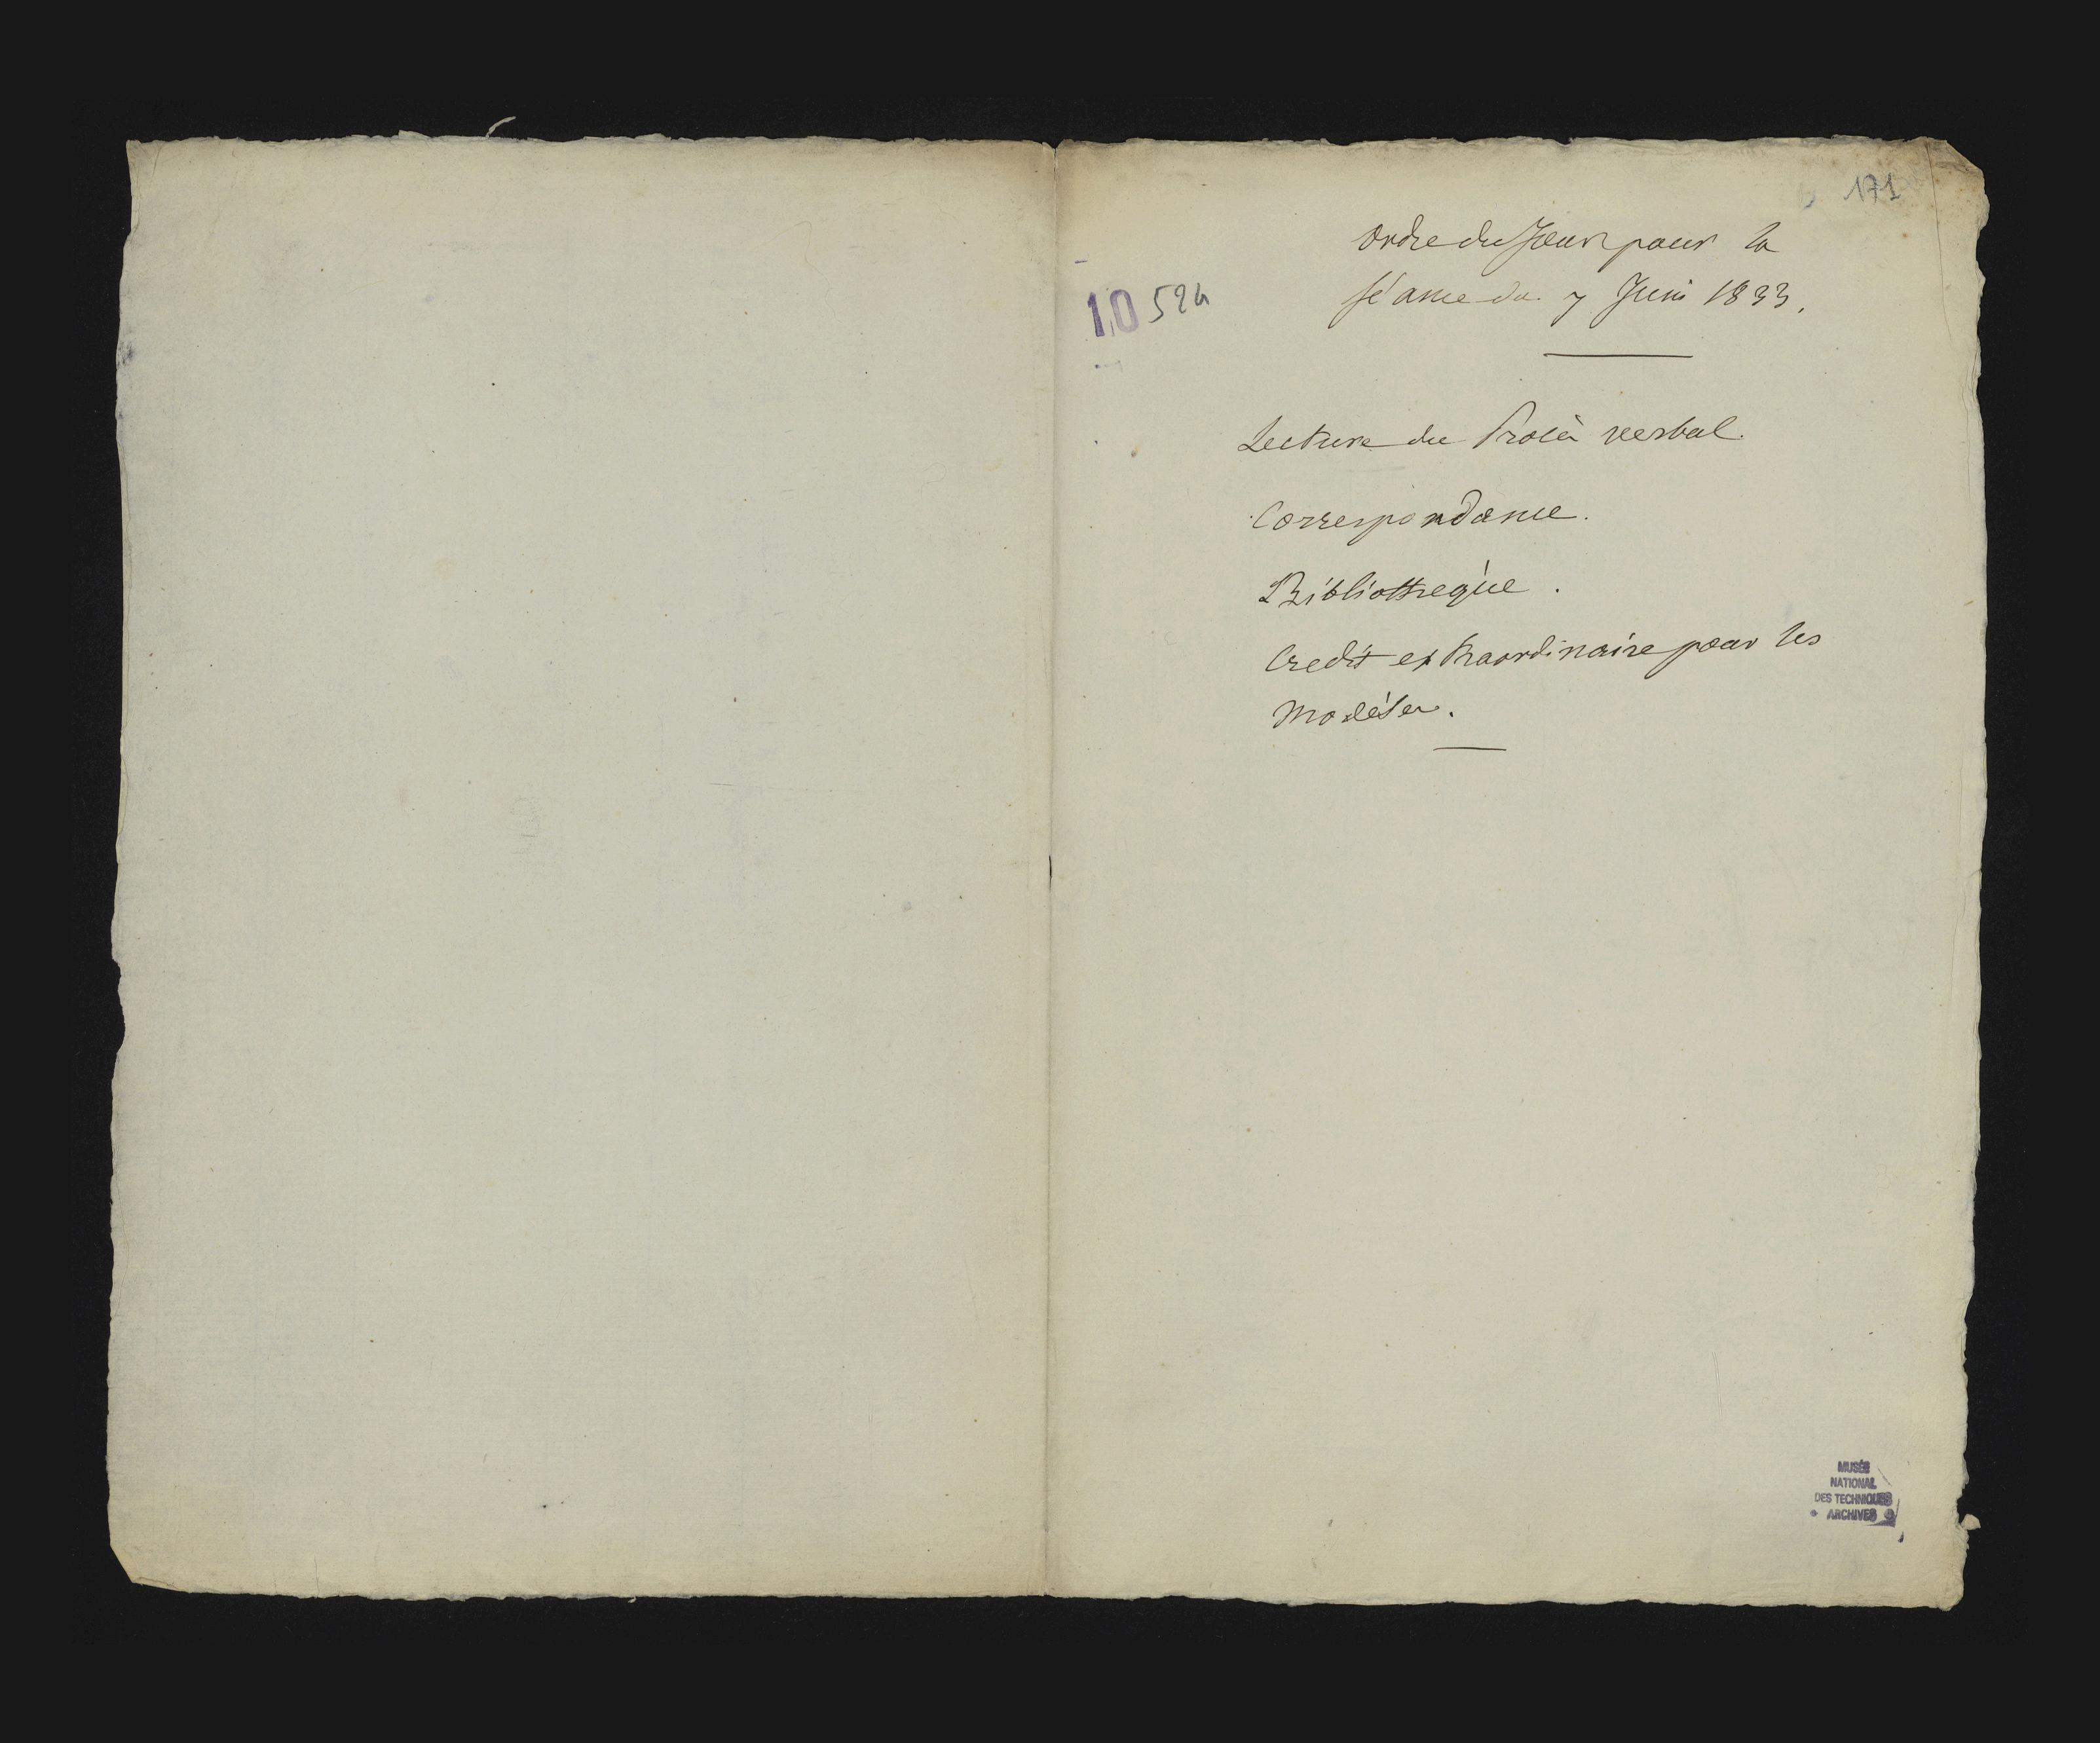 171
Ordre du Jour pour la
Séance du 7 Juin 1833.
10 524
Lecture du Procès verbal.
Correspondance.
Bibliothèque.
Credit extraordinaire pour les
Modèles.
MUSÉE
NATIONAL
DES TECHNIQUES
ARCHIVES